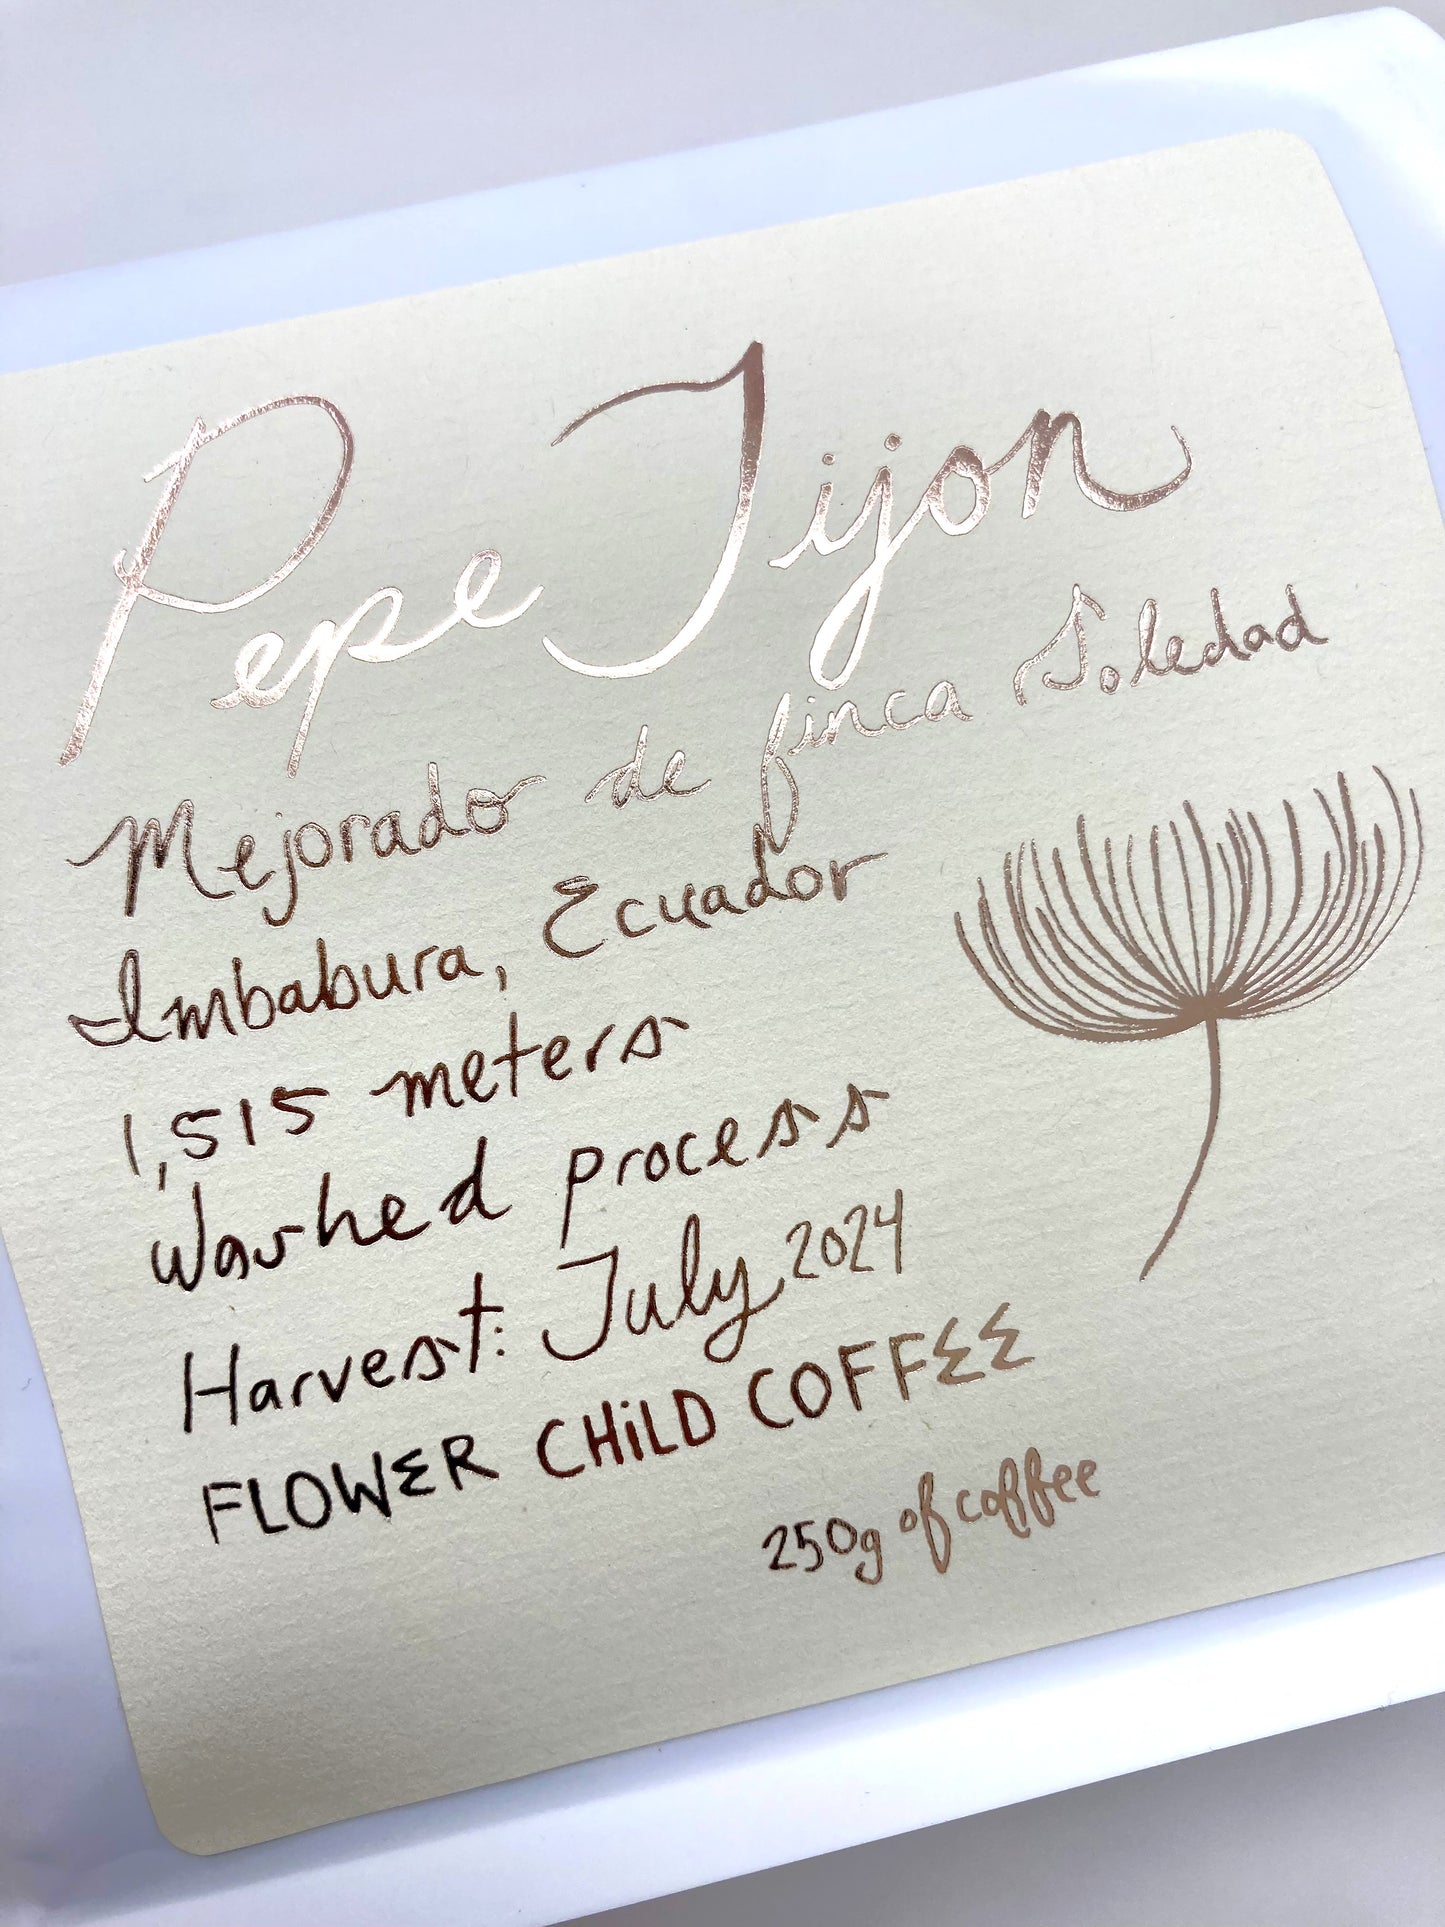 Pepe Jijon
Mejorado de finca Soledad
Imbabura, Ecuador
1,515 meters
Washed process
Harvest: July 2024
FLOWER CHiLD COFFEE
250g of coffee